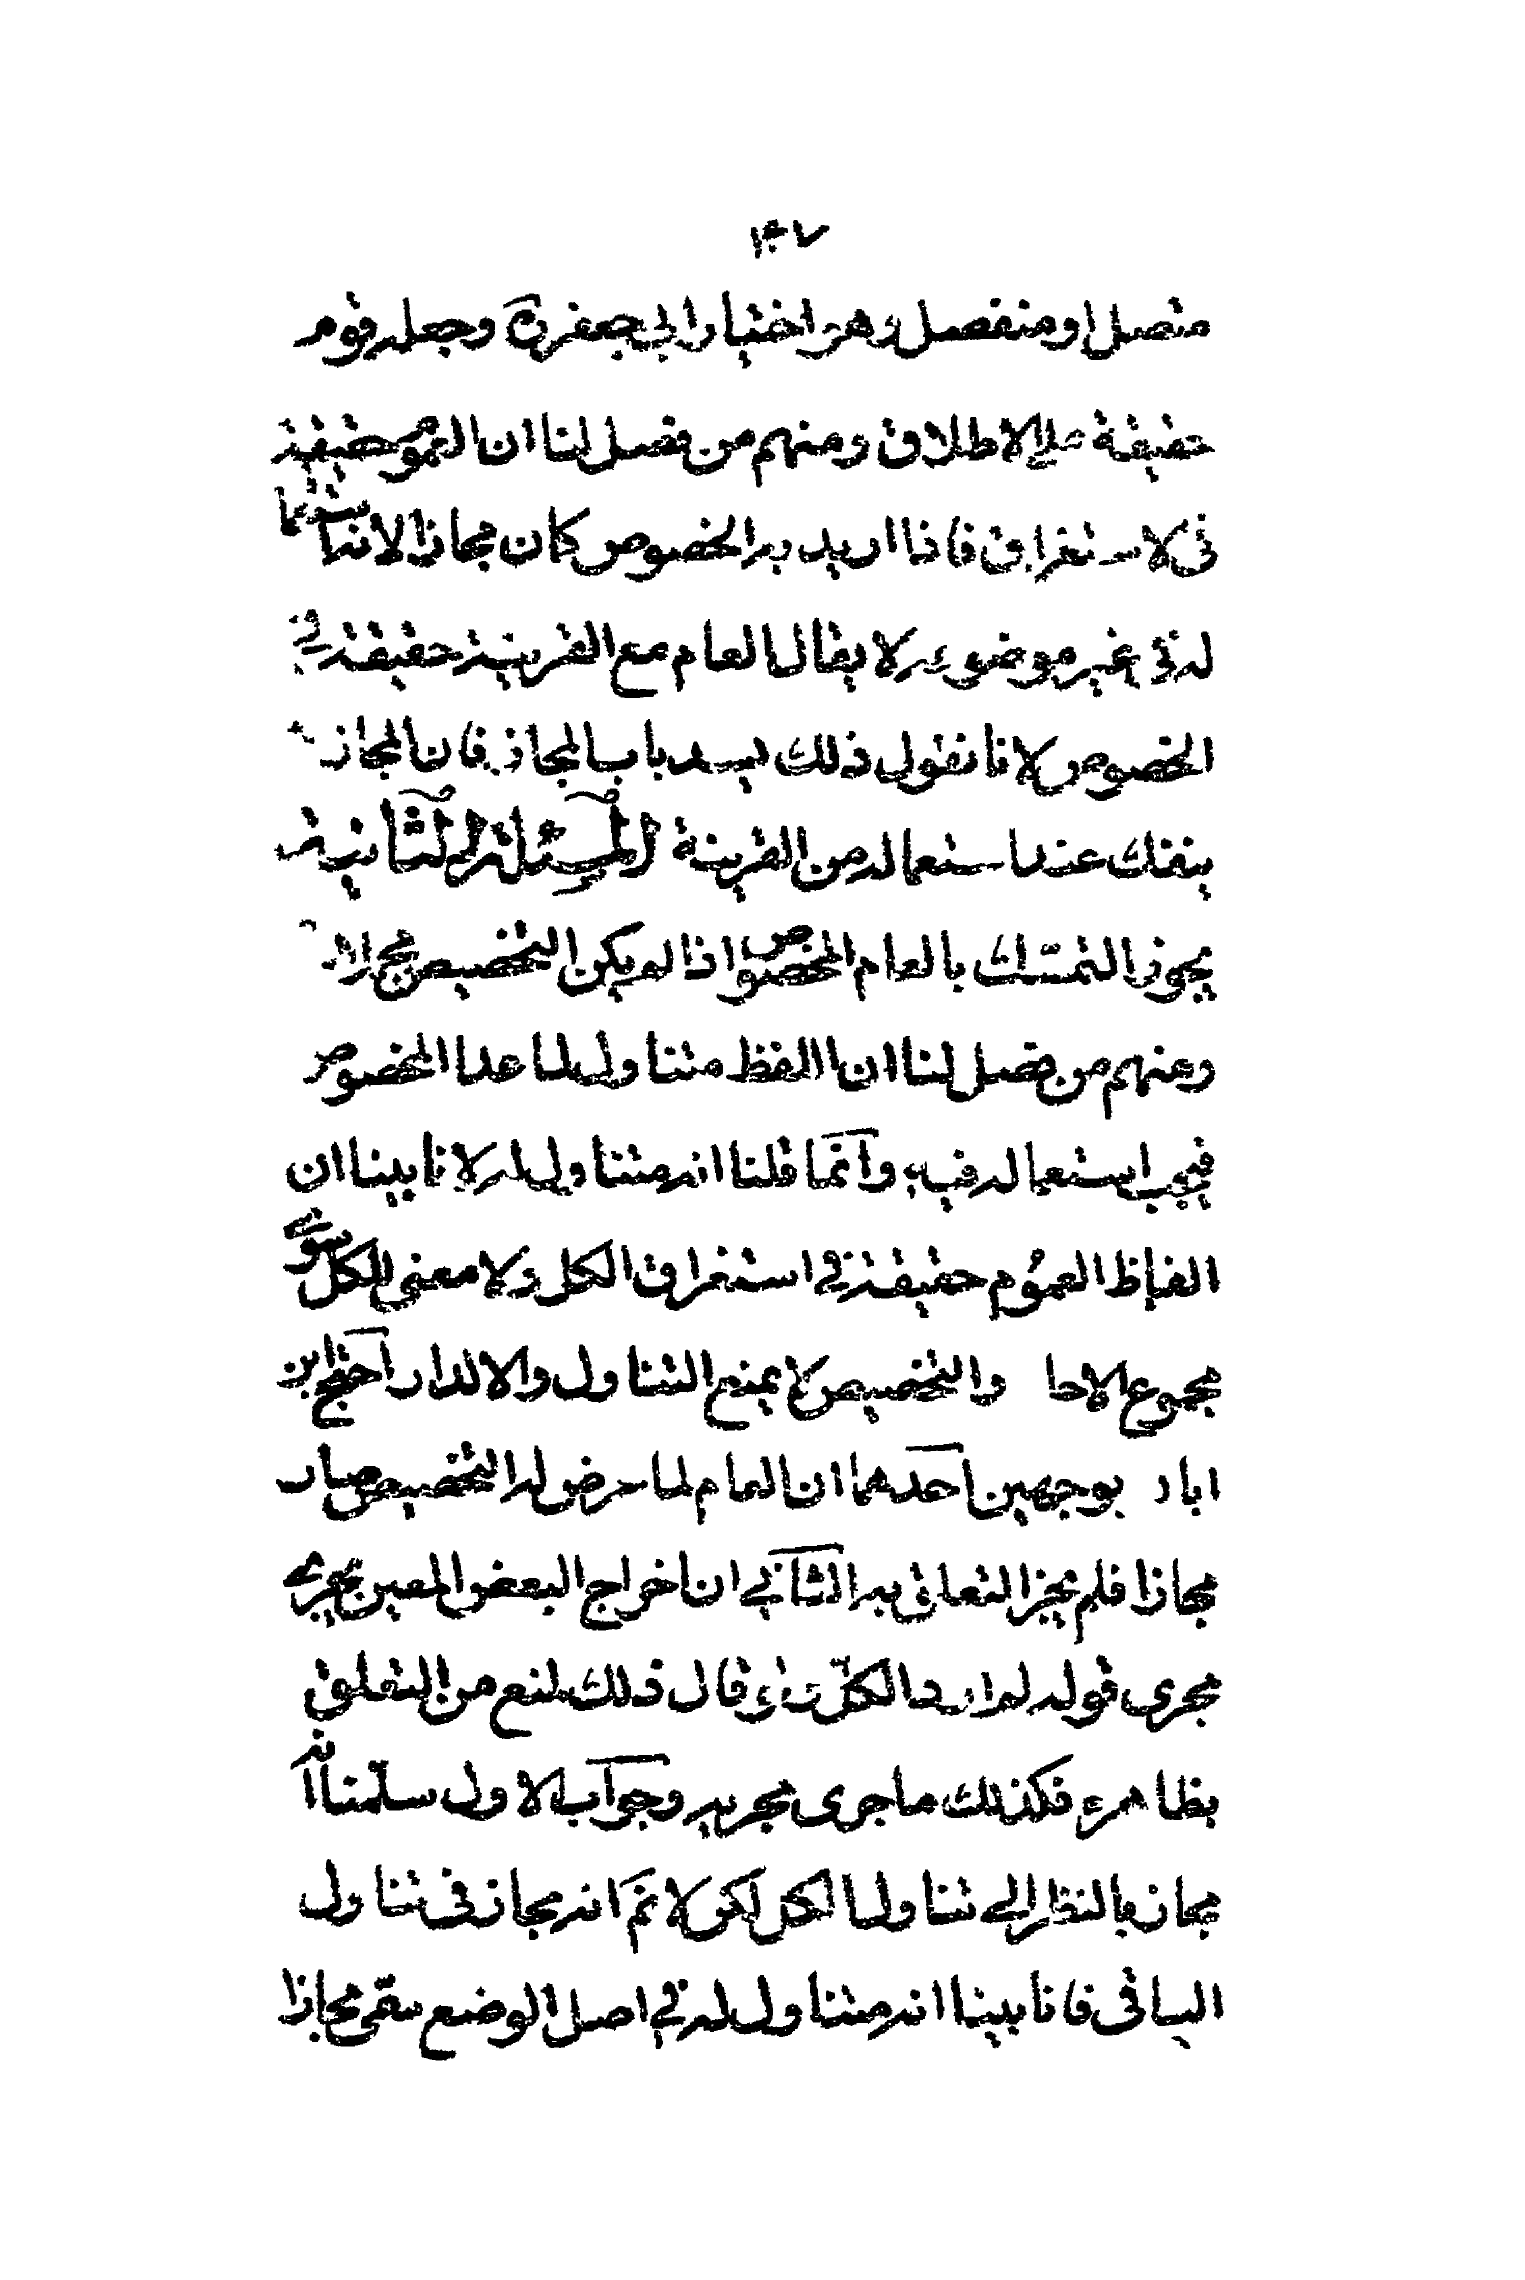 متصل او منفصل وهو اختيار ابي جعفر ره وجعله قوم
حقيقة على الاطلاق ومنهم من فصل لنا ان العموم حقيقة
فى الاستغراق فاذا اريد به الخصوص كان مجازا لانه استعمال
له فى غير موضوعه لا يقال العام مع القرينة حقيقة في
الخصوص لانا نقول ذلك يسد باب المجاز فان المجاز
ينفك عند استعماله من القرينة المسئلة الثانية
يجوز التمسك بالعام المخصوص اذا لم يكن التخصيص مجملا
ومنهم من فصل لنا ان اللفظ متناول لما عدا المخصوص
فيجب استعماله فيه وانما قلنا انه متناول له لانا بينا ان
الفاظ العموم حقيقة في استغراق الكل ولا معنى للكل سوى
مجموع الاحا والتخصيص لا يمنع التناول والا لدار احتج ابن
ابا د بوجهين احدهما ان العام لما عرض له التخصيص صار
مجازا فلم يجز التعلق به الثاني ان اخراج البعض المعين يجرى
مجرى قوله لم ارد الكل ولو قال ذلك لمنع من التعلق
بظاهره فكذلك ما جرى مجريه وجواب الاول سلمنا انه
مجاز بالنظر الى تناول الكل لكن لا نم انه مجاز فى تناول
الباقى فانا بينا انه متناول له في اصل الوضع سمى مجازا